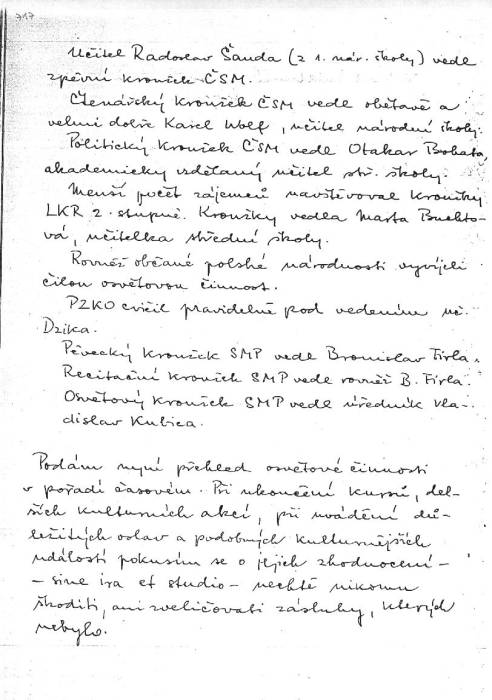 717
Učitel Radoslav Šanda (z 1. nár. školy) vedl
zpěvní kroužek ČSM.
Čtenářský kroužek ČSM vedl obětavě a
velmi dobře Karel Wolf, učitel národní školy.
Politický kroužek ČSM vedl Otakar Bohata,
akademicky vzdělaný učitel stř. školy.
Menší počet zájemců navštěvoval kroužky
LKR 2. stupně. Kroužky vedla Marta Buchto-
vá, učitelka střední školy.
Rovněž občané polské národnosti vyvíjeli
čilou osvětovou činnost.
PZKO cvičil pravidelně pod vedením uč.
Dzika.
Pěvecký kroužek SMP vedl Bronislav Firla.
Recitační kroužek SMP vedl rovněž B. Firla.
Osvětový kroužek SMP vedl úředník Vla-
dislav Kubica.
Podám nyní přehled osvětové činnosti
v pořadí časovém. Při ukončení kursů, del-
ších kulturních akcí, při uvádění dů-
ležitých oslav a podobných kulturnějších
událostí pokusím se o jejich zhodnocení -
- sine ira et studio - nechtě nikomu
škoditi, ani zveličovati zásluhy, kterých
nebylo.